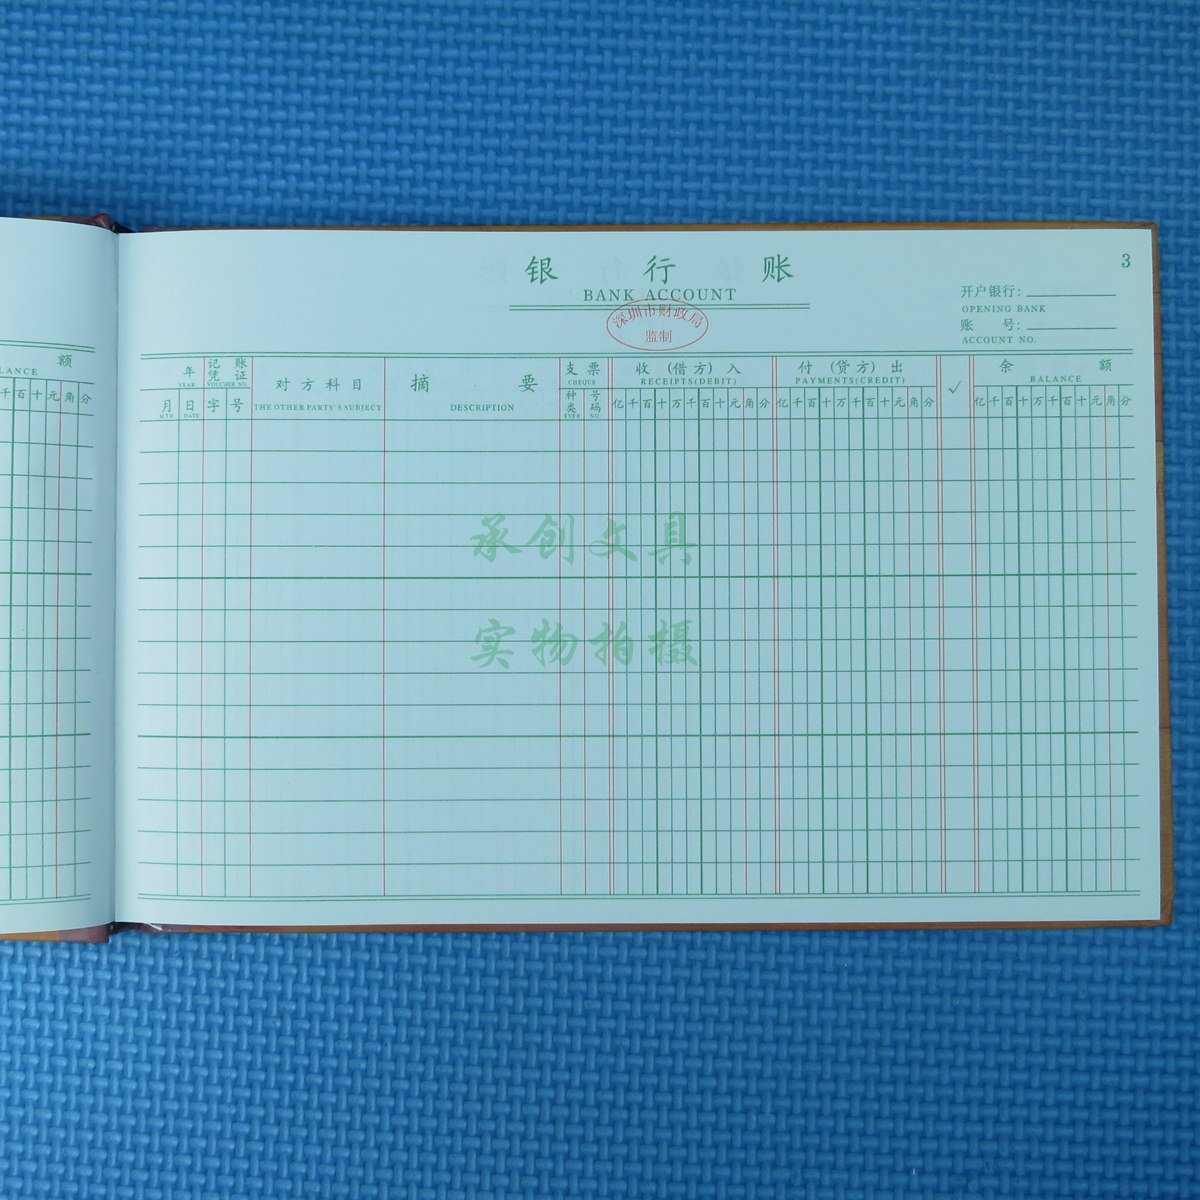 银行账
BANK ACCOUNT
3
深圳市财政局
监制
开户银行:
OPENING BANK
账 号:
ACCOUNT NO.
年
YEAR
月
MTH
日
DATE
记账
凭证
VOUCHER NO.
字 号
对方科目
THE OTHER PARTY'S SUBJECT
摘要
DESCRIPTION
支票
CHEQUE
种类
TYPE
号码
NO.
收(借方)入
RECEIPTS(DEBIT)
亿千百十万千百十元角分
付(贷方)出
PAYMENTS(CREDIT)
亿千百十万千百十元角分
✓
余额
BALANCE
亿千百十万千百十元角分
额
LANCE
千百十元角分
承创文具
实物拍摄